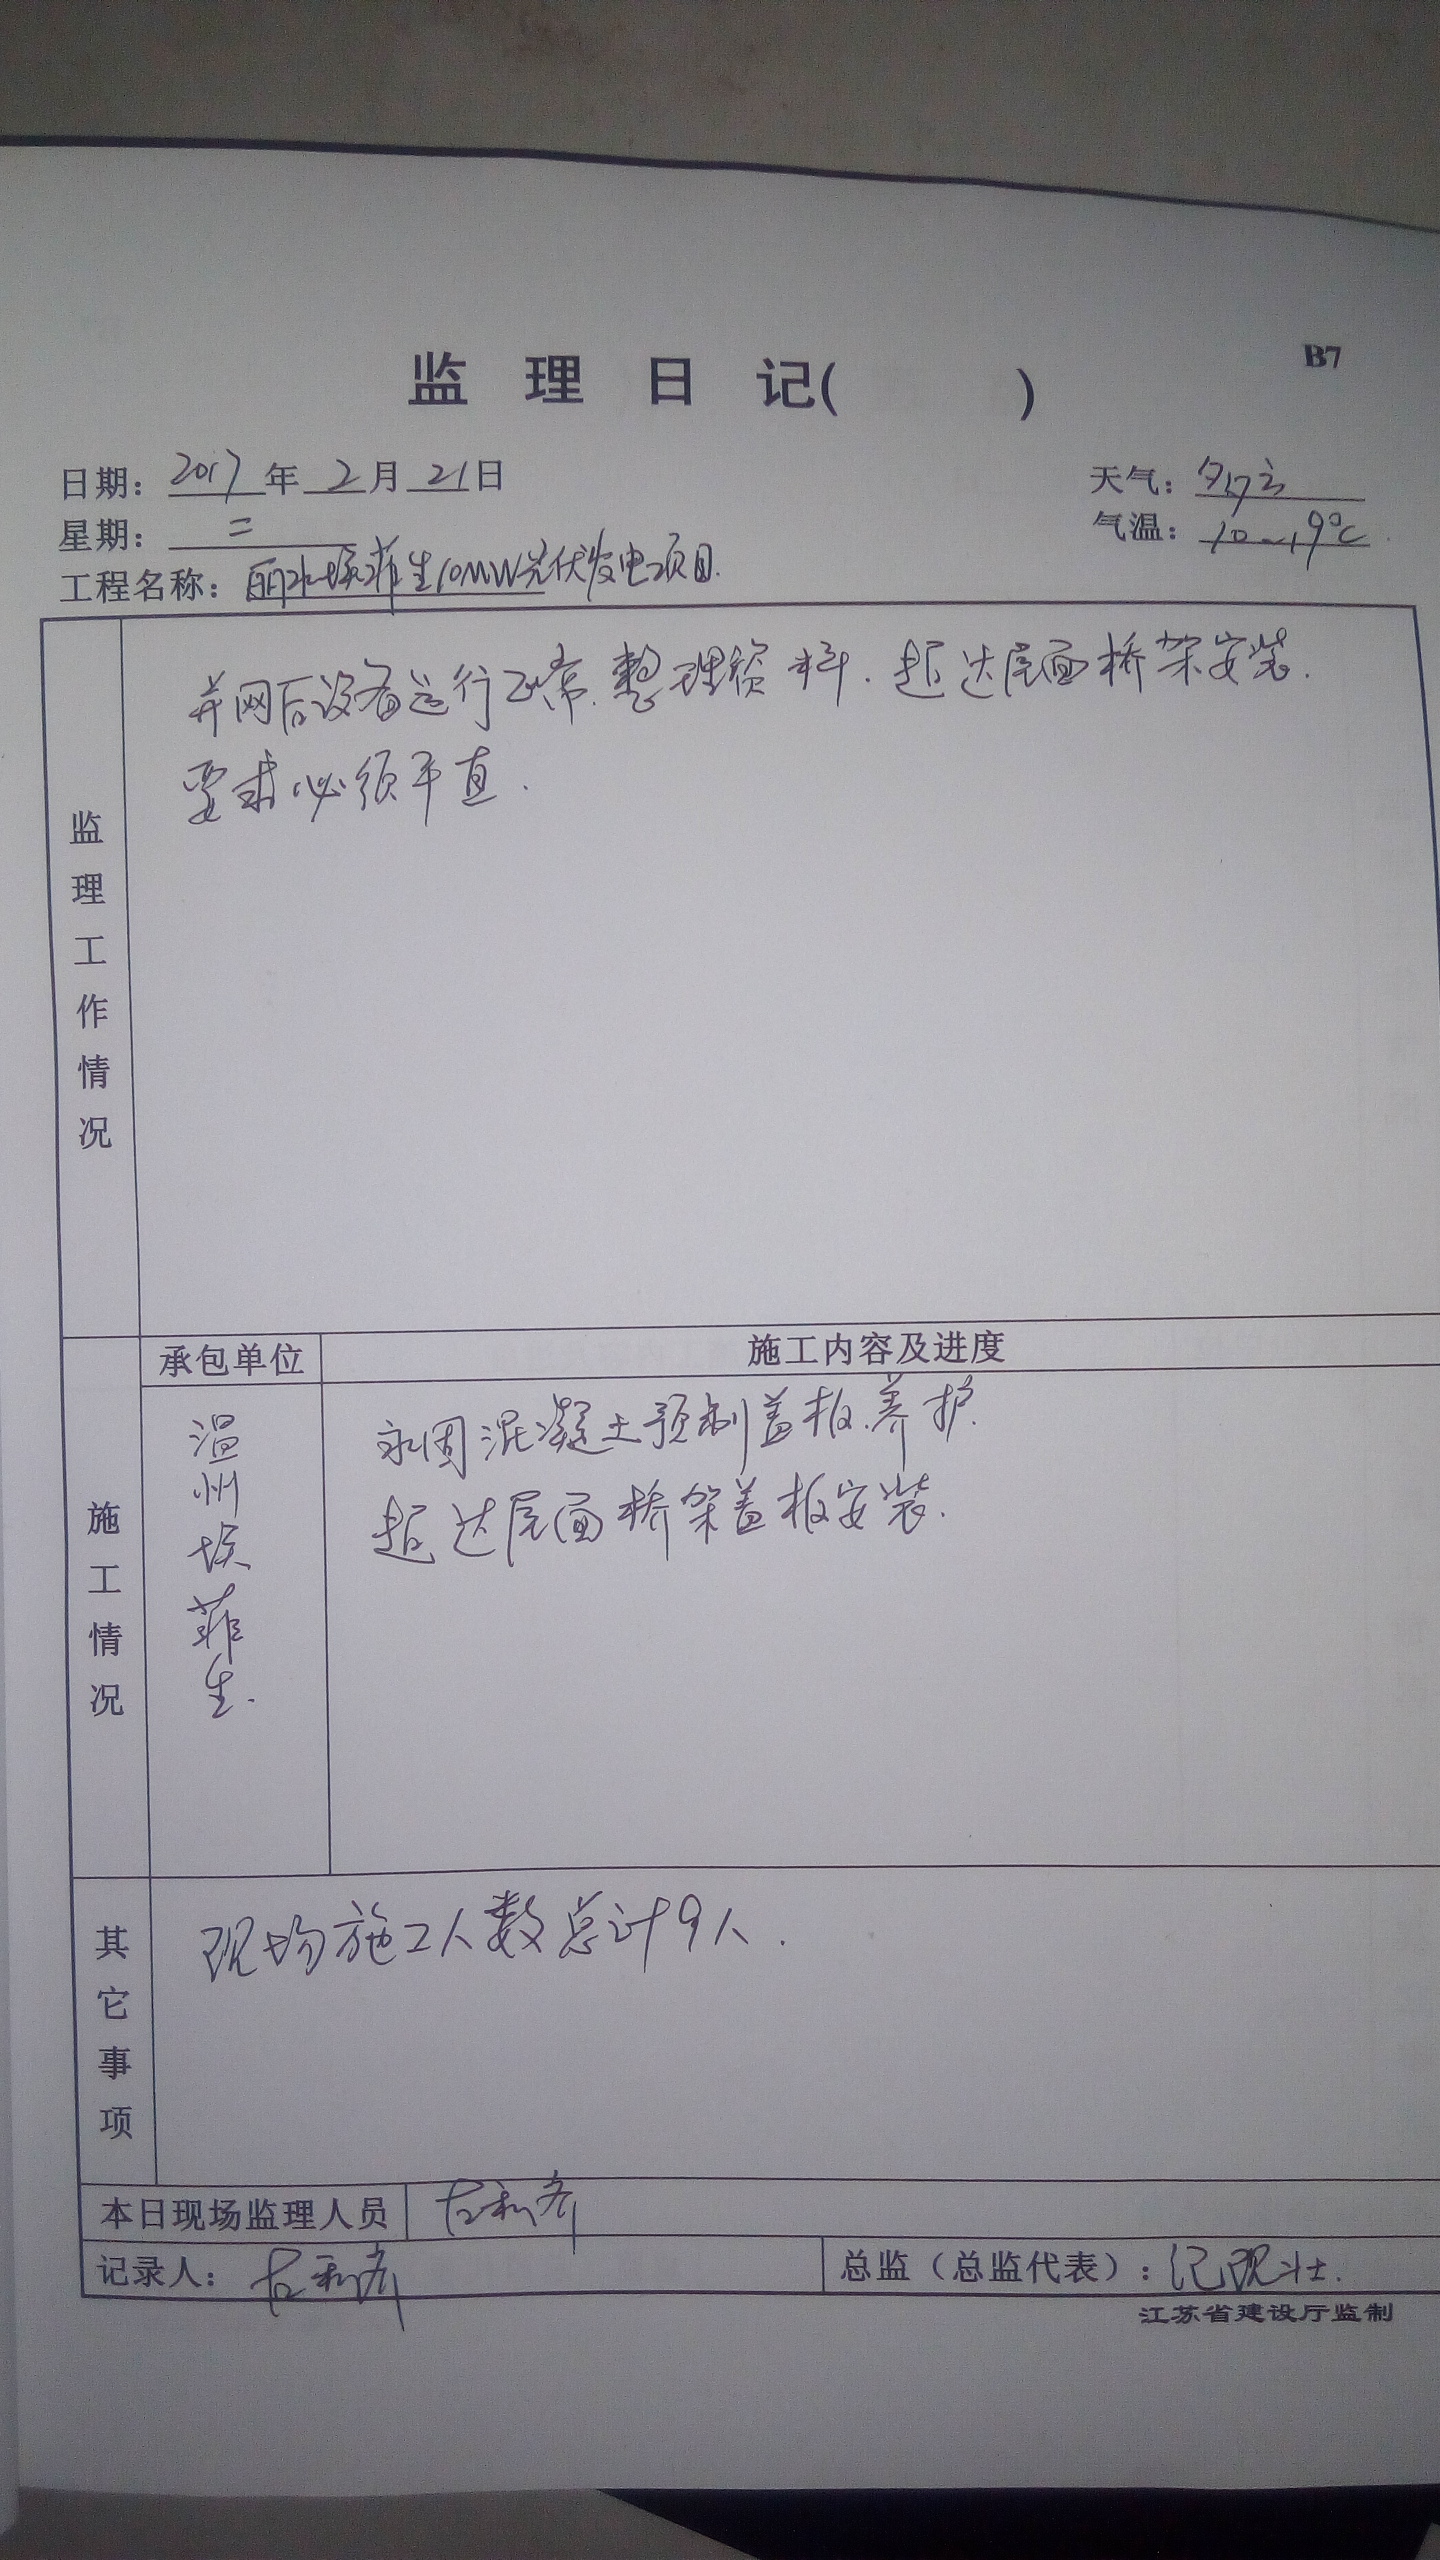 B7
监 理 日 记(          )
日期: 2017 年 2 月 21 日
天气: 多云
星期: 二
气温: 10~19℃
工程名称: 丽水埃菲生10MW光伏发电项目.
监理工作情况
并网后设备运行正常.整理资料.超达屋面桥架安装.
要求必须平直.
施工情况
承包单位
施工内容及进度
温州埃菲生.
永固混凝土预制盖板养护.
超达屋面桥架盖板安装.
其它事项
现场施工人数总计9人.
本日现场监理人员
记录人:
总监（总监代表）:
江苏省建设厅监制